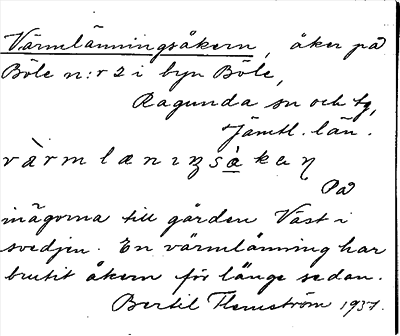 Värmlänningsåkern, åker på
Böle n:r 2 i byn Böle,
Ragunda sn och tg,
Jämtl. län.
På
inägorna till gården Väst i
svedjen. En värmlänning har
brutit åkern för länge sedan.
Bertil Flemström 1937.